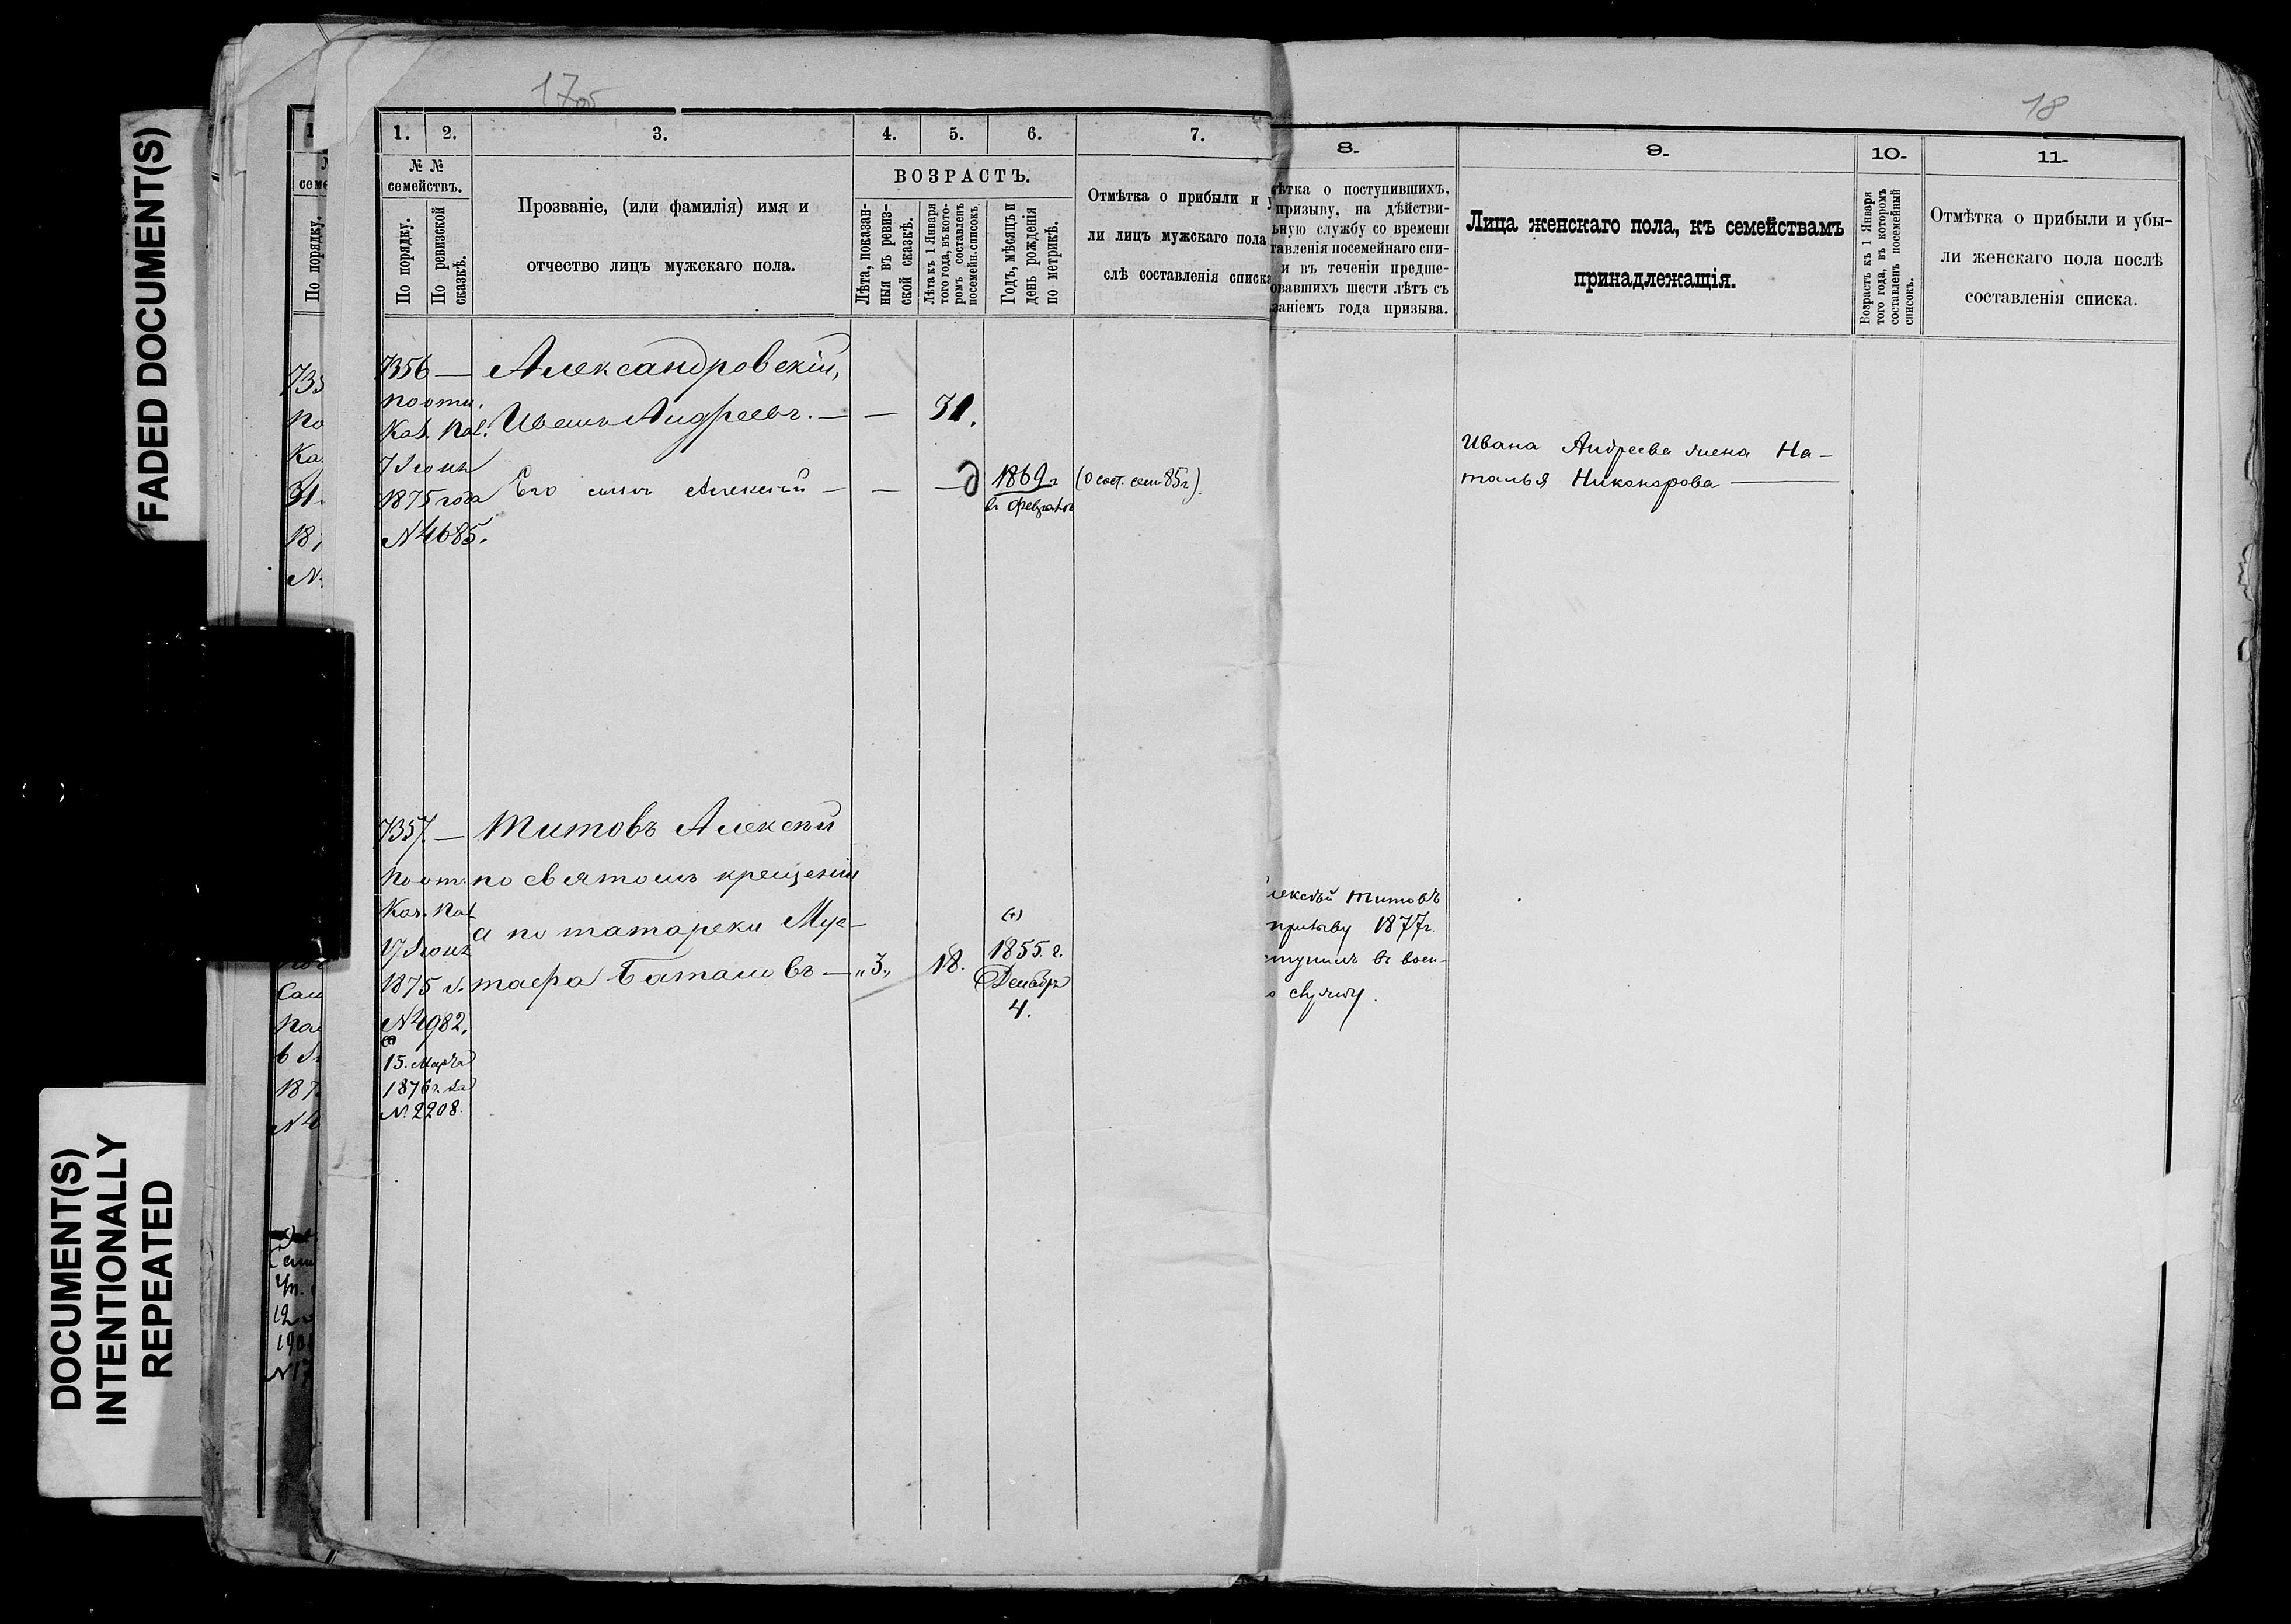 FADED DOCUMENT(S)
DOCUMENT(S)
INTENTIONALLY
REPEATED
17об
18
1. 2. 3. 4. 5. 6. 7.
8. 9. 10. 11.
№ №
семействъ.
По порядку.
По ревизской
сказкѣ.
Прозваніе, (или фамилія) имя и
отчество лицъ мужскаго пола.
ВОЗРАСТЪ.
Лѣта, показан-
ныя въ ревиз-
ской сказкѣ.
Лѣта къ 1 Января
того года, въ кото-
ромъ составленъ
посемейн. списокъ.
Годъ, мѣсяцъ и
день рожденія
по метрикѣ.
Отмѣтка о прибыли и у
ли лицъ мужскаго пола
слѣ составленія списка
ѣтка о поступившихъ,
призыву, на дѣйстви-
ьную службу со времени
тавленія посемейнаго спи-
и въ теченіи предше-
овавшихъ шести лѣтъ съ
заніемъ года призыва.
Лица женскаго пола, къ семействамъ
принадлежащія.
Возрастъ къ 1 Января
того года, въ которомъ
составленъ посемейный
списокъ.
Отмѣтка о прибыли и убы-
ли женскаго пола послѣ
составленія списка.
7356 — Александровскій,
по отн.
Каз. Пал. Иванъ Андреевъ. — — 31.
7 Іюня
1875 года Его сынъ Алексѣй — — — 1869 г (о сост. сем 85 г).
въ февралѣ
№ 4685.
Ивана Андреева жена На-
талья Никонорова —
7357. — Титовъ Алексѣй
по отн. по святомъ крещеніи
Каз. Пал. а по татарски Мус-
17 Іюня
1875 г. тафа Баташовъ — „3„ 18. 1855. г.
Декабр
4.
№ 4982.
15. Марта
1876 г. за
№ 2208.
лексѣй Титовъ
призыву 1877 г.
ступилъ въ воен-
службу.